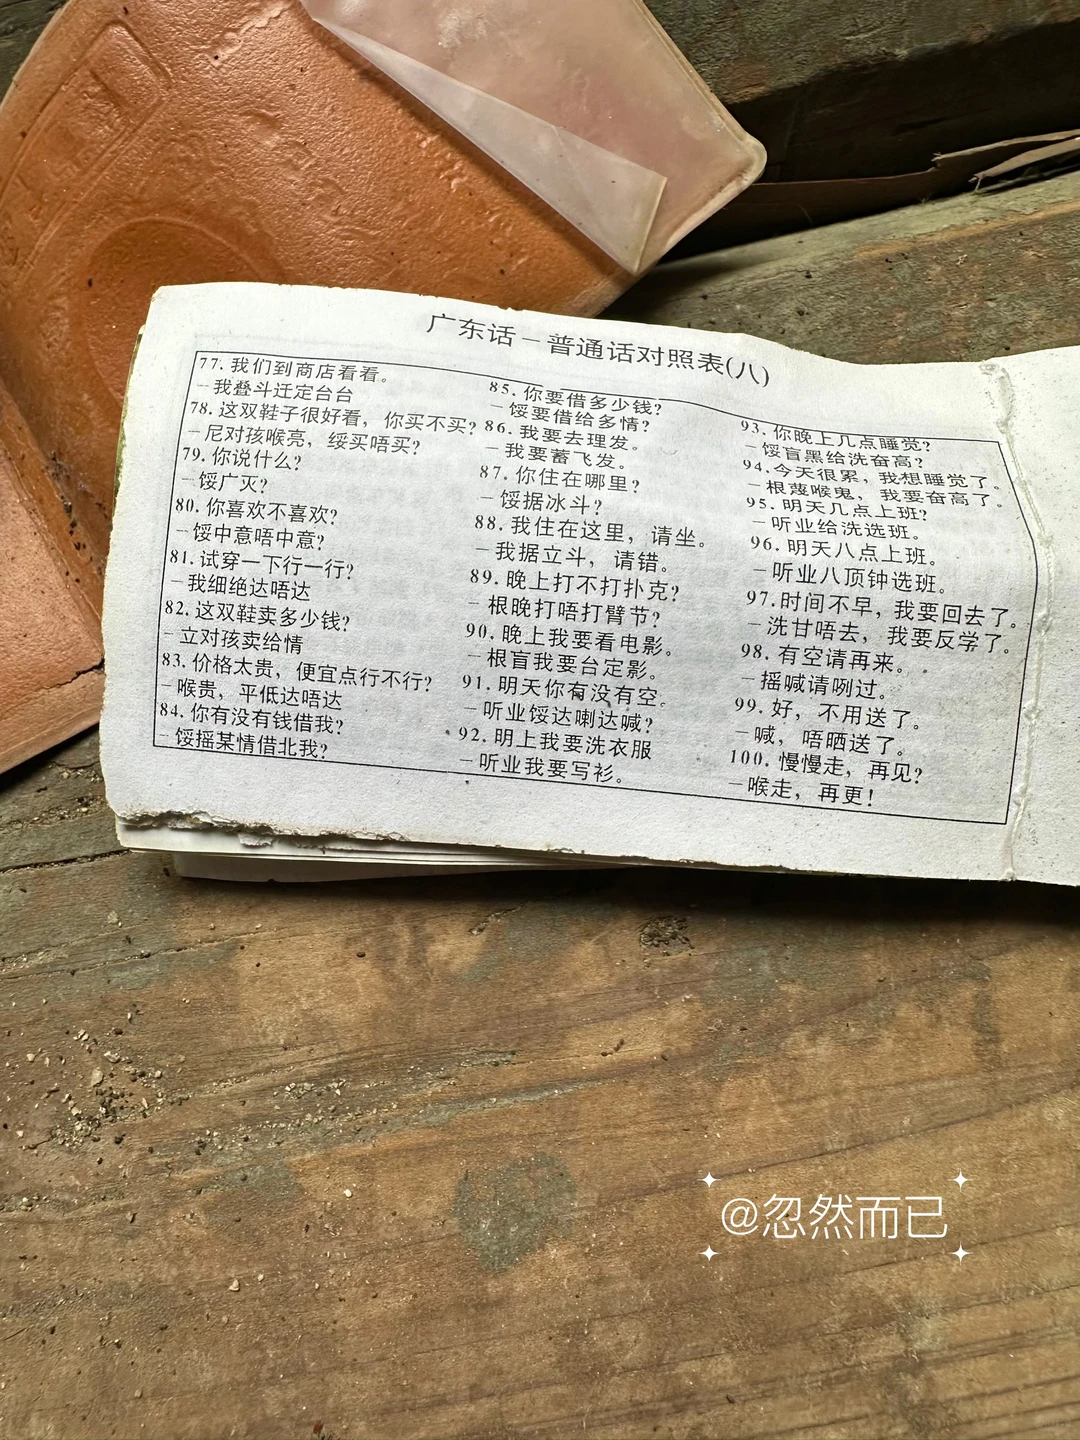 广东话－普通话对照表(八)
77. 我们到商店看看。
－我叠斗迁定台台
78. 这双鞋子很好看，你买不买？
－尼对孩喉亮，绥买唔买？
79. 你说什么？
－馁广灭？
80. 你喜欢不喜欢？
－馁中意唔中意？
81. 试穿一下行一行？
－我细绝达唔达
82. 这双鞋卖多少钱？
－立对孩卖给情
83. 价格太贵，便宜点行不行？
－喉贵，平低达唔达
84. 你有没有钱借我？
－馁摇某情借北我？
85. 你要借多少钱？
－馁要借给多情？
86. 我要去理发。
－我要蓄飞发。
87. 你住在哪里？
－馁据冰斗？
88. 我住在这里，请坐。
－我据立斗，请错。
89. 晚上打不打扑克？
－根晚打唔打臂节？
90. 晚上我要看电影。
－根盲我要台定影。
91. 明天你有没有空。
－听业馁达喇达喊？
92. 明上我要洗衣服
－听业我要写衫。
93. 你晚上几点睡觉？
－馁盲黑给洗奋高？
94. 今天很累，我想睡觉了。
－根蔑喉鬼，我要奋高了。
95. 明天几点上班？
－听业给洗选班。
96. 明天八点上班。
－听业八顶钟选班。
97. 时间不早，我要回去了。
－洗甘唔去，我要反学了。
98. 有空请再来。
－摇喊请咧过。
99. 好，不用送了。
－喊，唔晒送了。
100. 慢慢走，再见？
－喉走，再更！
@忽然而已